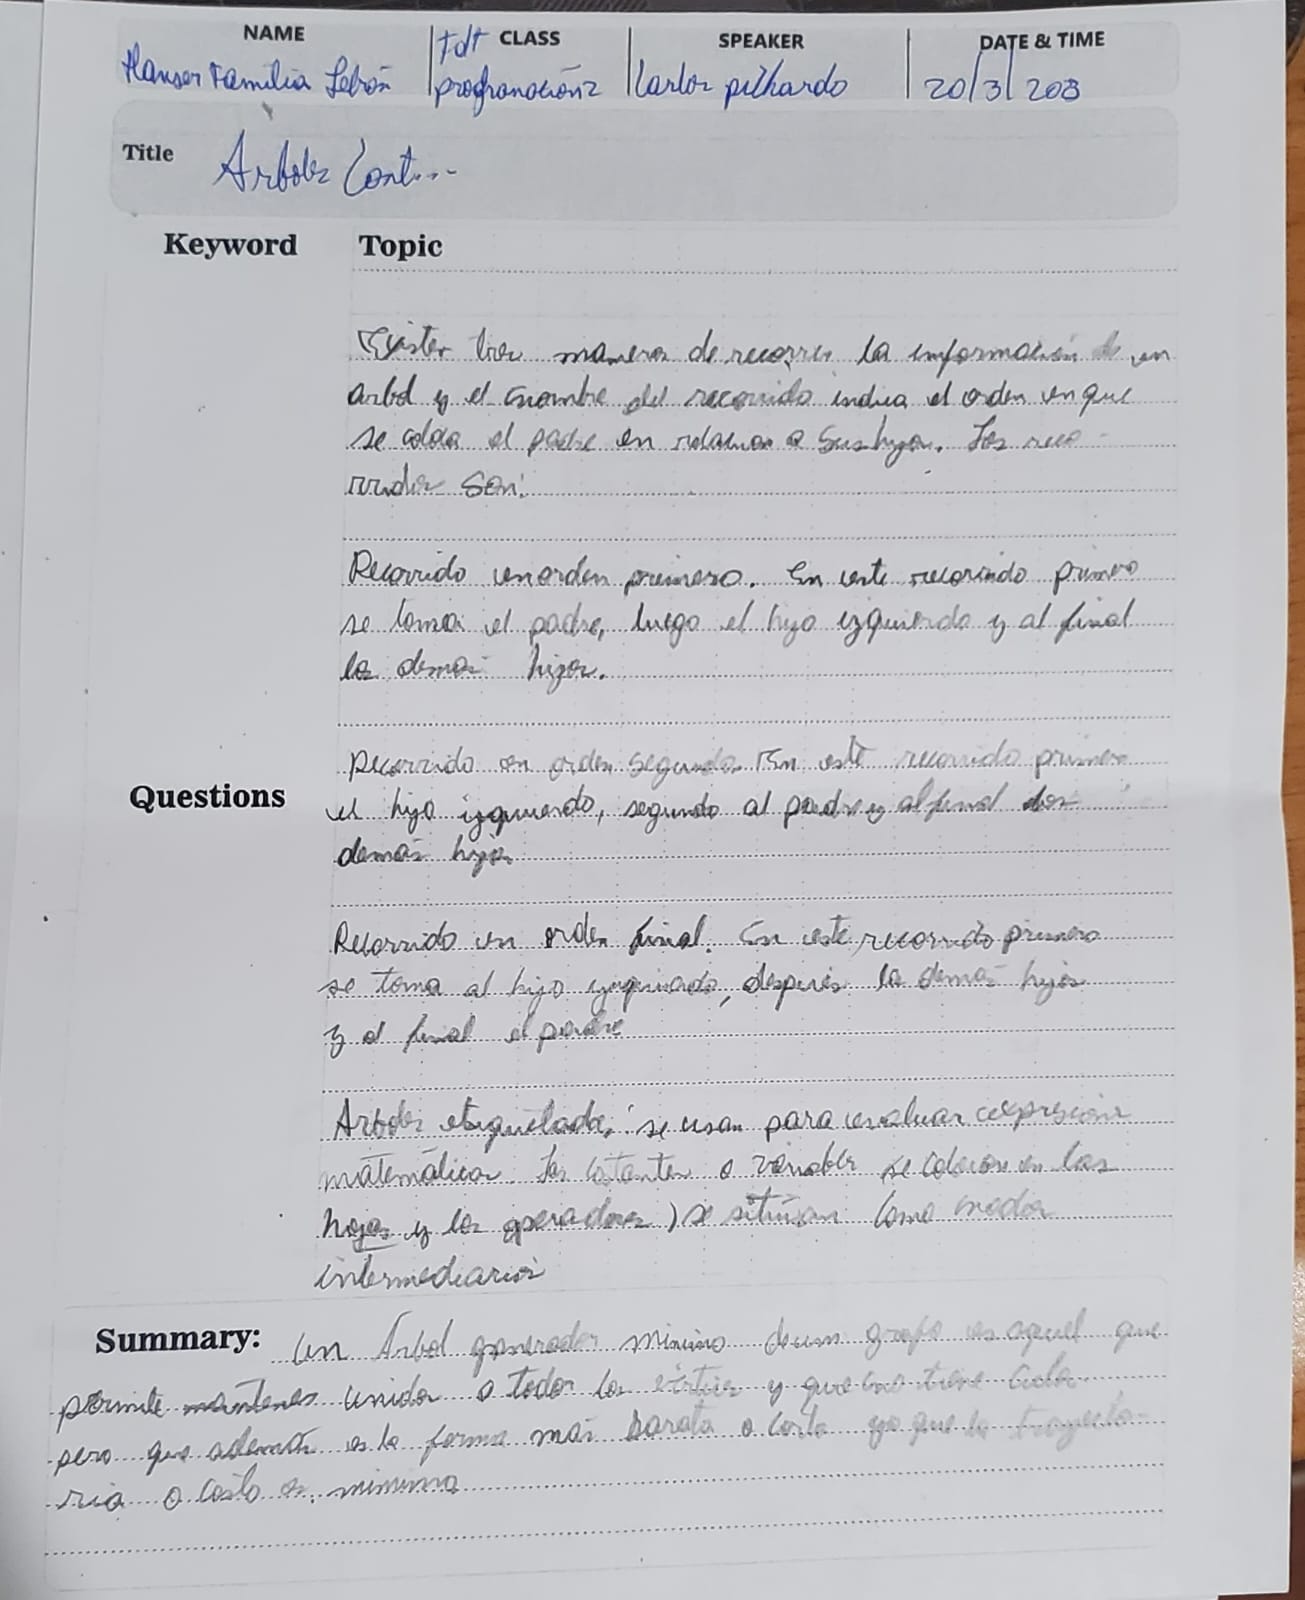 NAME CLASS SPEAKER DATE & TIME
Hanser Familia Lebrón tdt programación2 Carlos pichardo 20/3/203
Title Arboles Cont...
Keyword Topic
Existen tres maneras de recorrer la información de un
arbol y el nombre del recorrido indica el orden en que
se coloca el padre en relacion a sus hijos. Los reco-
rridos son:
Recorrido en orden primero. En este recorrido primero
se toma el padre, luego el hijo izquierdo y al final
los demas hijos.
Recorrido en orden segundo. En este recorrido primero
Questions
el hijo izquierdo, segundo al padre y al final los
demás hijos
Recorrido en orden final. En este recorrido primero
se toma al hijo izquierdo, después los demás hijos
y al final el padre
Arboles etiquetados: se usan para evaluar expresiones
matemáticas. Las constantes o variables se colocan en las
hojas y los operadores se sitúan como nodos
intermediarios
Summary: Un Arbol generador minimo de un grafo es aquel que
permite mantener unidos a todos los vértices y que no tiene ciclos
pero que además es la forma más barata o corta ya que la trayecto-
ria o costo es minima